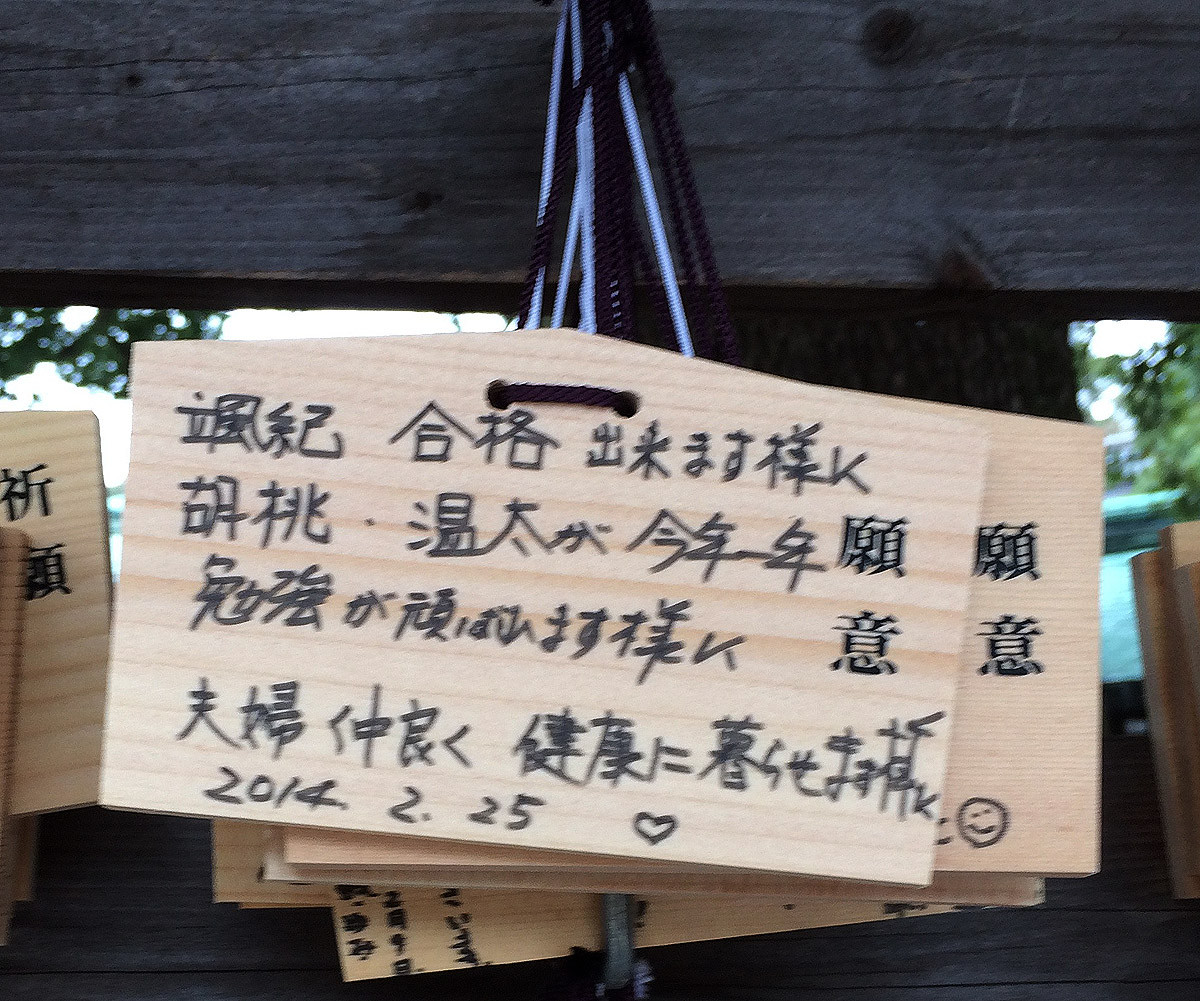 颯紀 合格 出来ます様に
胡桃・温太が 今年一年
勉強が頑ばれます様に
夫婦 仲良く 健康に暮らせます様に
2014. 2. 25 ♡
願意
願意
祈願